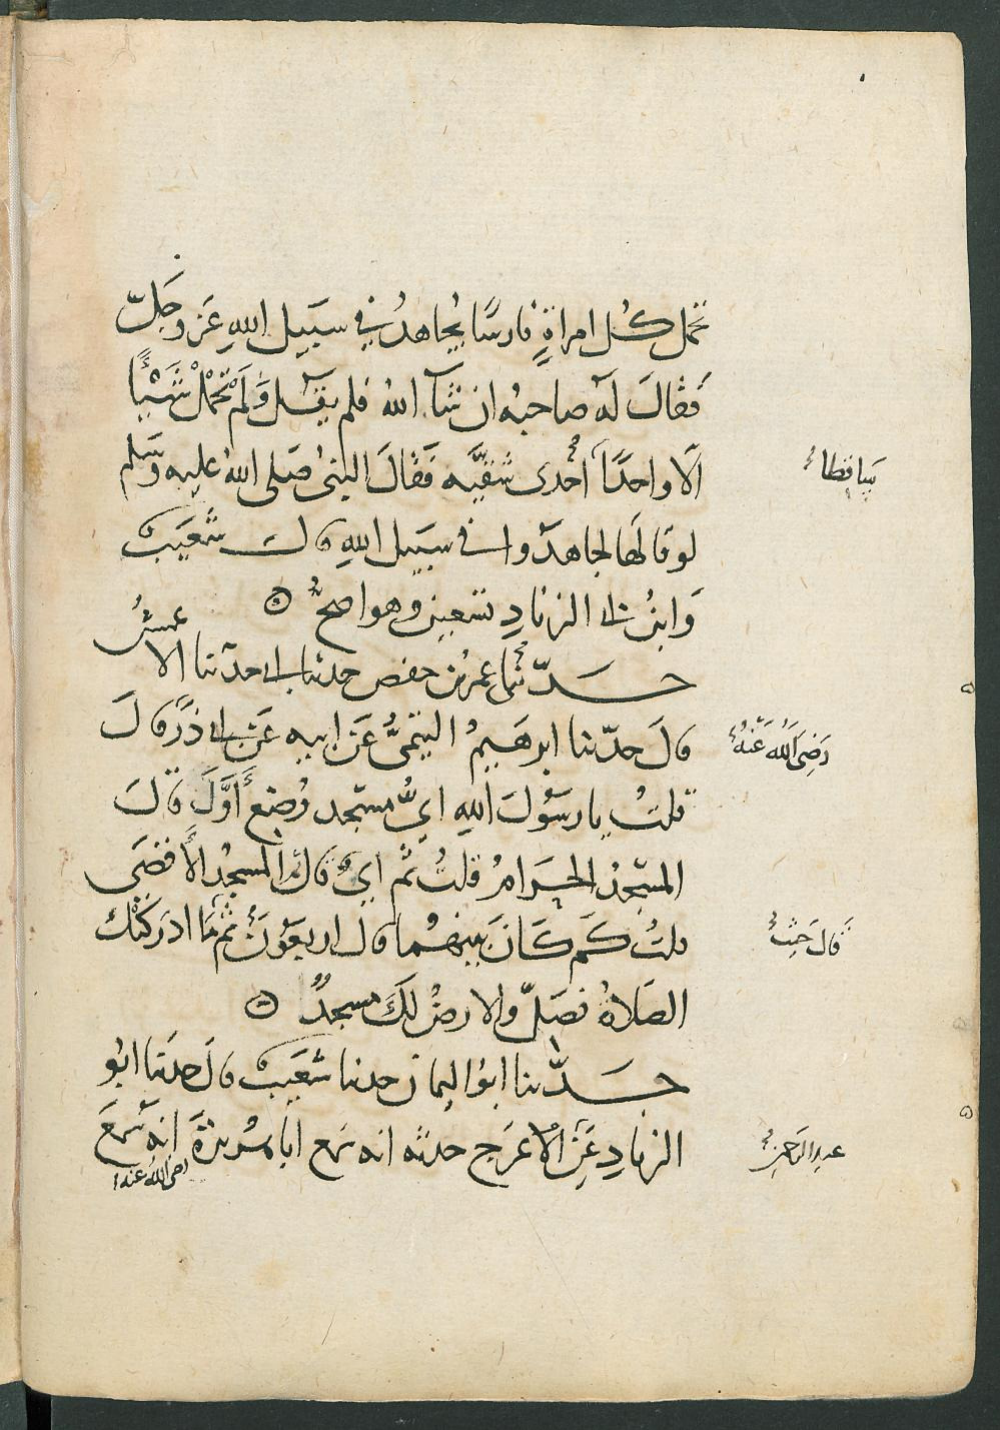 تحمل كل امراة فارسًا يُجاهدُ في سبيل اللهِ عَزّ وجَلّ
فَقَالَ لَه صاحبُه ان شآ اللهُ فلم يقل وَلَمْ تَحْمِلْ شَيْئًا
الّا واحدًا احدى شقيه فَقَالَ النبىُ صَلى اللهُ عليه وسَلم
ساقطا
لو قالها لجاهدوا في سبيل اللهِ قال شعَيب
وَابنُ ابى الزنادِ تسعين وهو اصح
حدّثنا عمر بن حفص حدثنا ابى حدثنا الاعمش
قالَ حدّثنا ابرهيمُ التيمىُّ عَن ابيه عَن ابى ذرّ قالَ
رَضِىَ اللهُ عَنْهُ
قلتُ يا رسَوُلَ اللهِ ايُّ مسَجد وُضِعَ اَوَّلَ قالَ
المسَجدُ الحَرامُ قلتُ ثم اي قال ثم المسجدُ الأَقصَى
قلتُ كَم كَانَ بينهُما قال اربعَوُنَ ثم مَا ادرَكَتْك
قال حَيثُ
الصَلاةُ فصَلّ والارضُ لَكَ مسجدٌ
حدّثنا ابوُ اليمان حدثنا شعَيب قالَ حدَثنا ابوُ
الزنادِ عَنِ الاعرَجِ حدثه انه سَمع ابا هُريرةَ انه سَمعَ
عبد الرحمن
رضى الله عنه